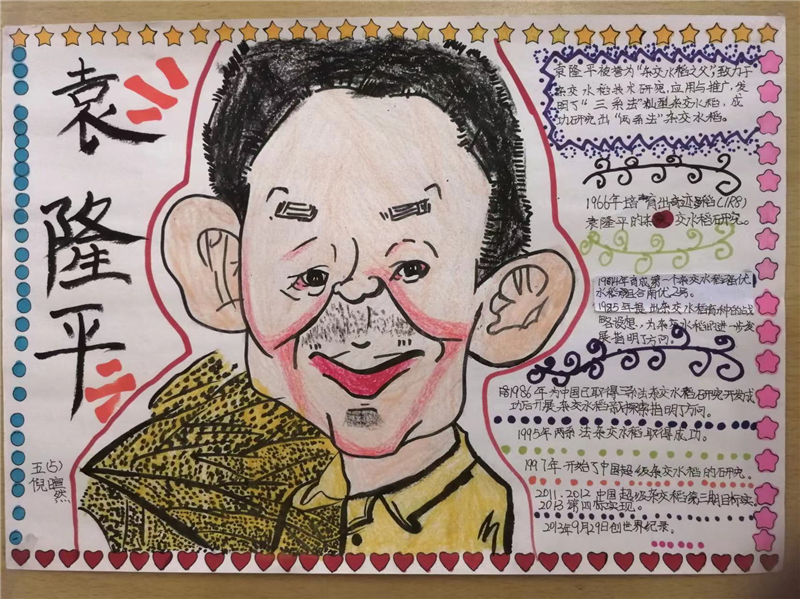 袁隆平
五(5)
倪暄然
袁隆平被誉为"杂交水稻之父",致力于
杂交水稻技术研究,应用与推广,发
明了"三系法"籼型杂交水稻,成
功研究出"两系法"杂交水稻。
1966年培育出奇迹稻(IR8)
袁隆平的 交水稻研究。
年育成第一个杂交水稻强优
水稻组合南优2号。
1985年提出杂交水稻育种的战
略设想,为杂交水稻的进一步发
展指明了方向
1986年为中国已取得三系法杂交水稻研究开发成
功后开展杂交水稻 探索指明了方向。
1995年两系法杂交水稻取得成功。
1997年开始了中国超级杂交水稻的研究。
2011.2012中国超级杂交稻第三期目标实
2013第四期实现。
年9月29日创世界纪录。